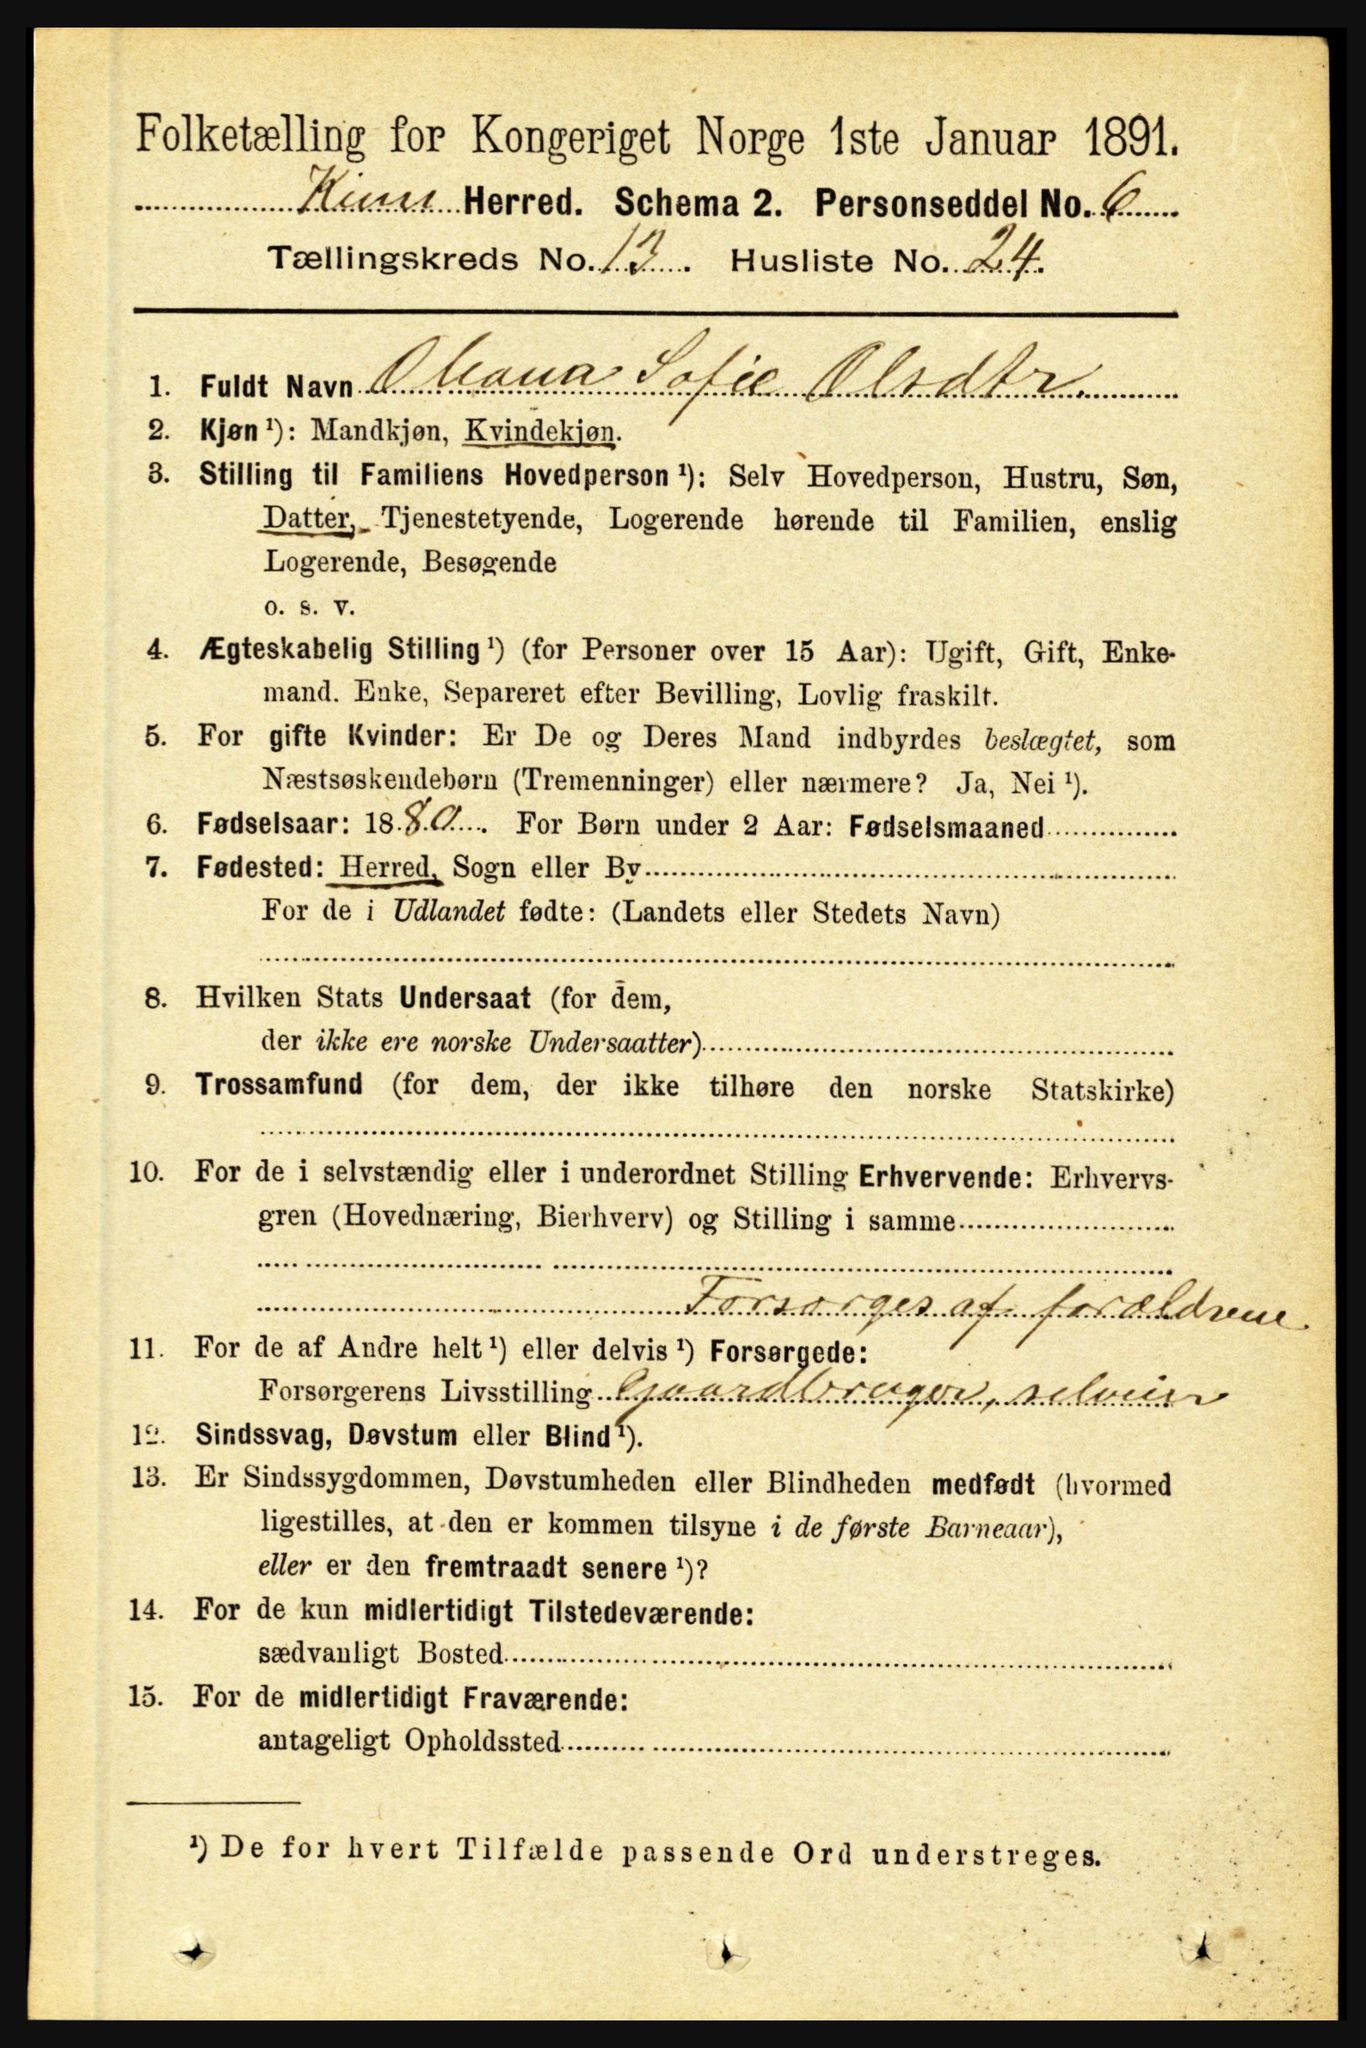 Folketælling for Kongeriget Norge 1ste Januar 1891.
Kinn Herred. Schema 2. Personseddel No. 6
Tællingskreds No. 13. Husliste No. 24.
1. Fuldt Navn Oleana Sofie Olsdtr.
2. Kjøn ¹): Mandkjøn, Kvindekjøn.
3. Stilling til Familiens Hovedperson ¹): Selv Hovedperson, Hustru, Søn,
Datter, Tjenestetyende, Logerende hørende til Familien, enslig
Logerende, Besøgende
o. s. v.
4. Ægteskabelig Stilling ¹) (for Personer over 15 Aar): Ugift, Gift, Enke-
mand. Enke, Separeret efter Bevilling, Lovlig fraskilt.
5. For gifte Kvinder: Er De og Deres Mand indbyrdes beslægtet, som
Næstsøskendebørn (Tremenninger) eller nærmere? Ja, Nei ¹).
6. Fødselsaar: 1880. For Børn under 2 Aar: Fødselsmaaned
7. Fødested: Herred, Sogn eller By
For de i Udlandet fødte: (Landets eller Stedets Navn)
8. Hvilken Stats Undersaat (for dem,
der ikke ere norske Undersaatter)
9. Trossamfund (for dem, der ikke tilhøre den norske Statskirke)
10. For de i selvstændig eller i underordnet Stilling Erhvervende: Erhvervs-
gren (Hovednæring, Bierhverv) og Stilling i samme
Forsørges af forældrene
11. For de af Andre helt ¹) eller delvis ¹) Forsørgede:
Forsørgerens Livsstilling Gaardbruger, selveier
12. Sindssvag, Døvstum eller Blind ¹).
13. Er Sindssygdommen, Døvstumheden eller Blindheden medfødt (hvormed
ligestilles, at den er kommen tilsyne i de første Barneaar),
eller er den fremtraadt senere ¹)?
14. For de kun midlertidigt Tilstedeværende:
sædvanligt Bosted
15. For de midlertidigt Fraværende:
antageligt Opholdssted
¹) De for hvert Tilfælde passende Ord understreges.